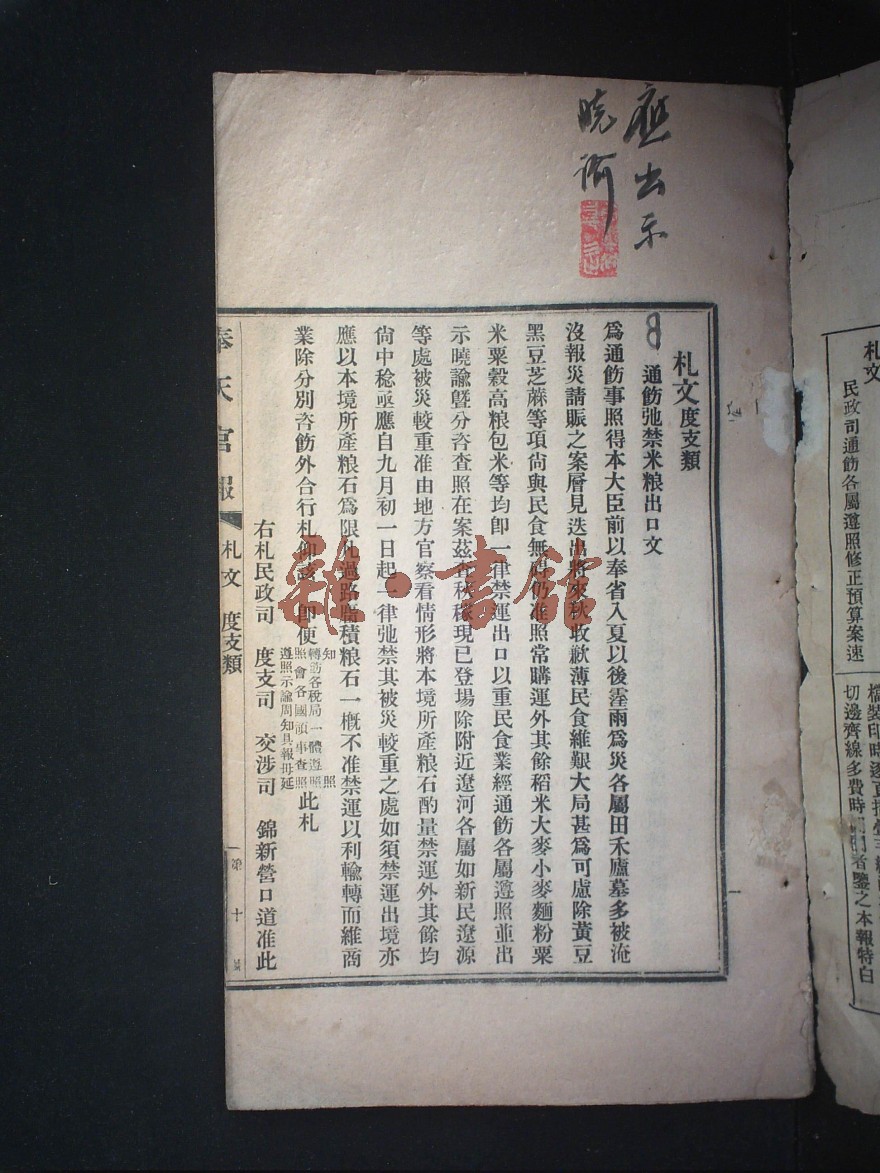 應出示
曉諭
札文度支類
8
通飭弛禁米粮出口文
爲通飭事照得本大臣前以奉省入夏以後霪雨爲災各屬田禾廬墓多被淹
沒報災請賑之案層見迭出將來秋收歉薄民食維艱大局甚爲可慮除黃豆
黑豆芝蔴等項尙與民食無碍仍准照常購運外其餘稻米大麥小麥麵粉粟
米粟穀高粮包米等均卽一律禁運出口以重民食業經通飭各屬遵照並出
示曉諭曁分咨查照在案茲查秋稼現已登場除附近遼河各屬如新民遼源
等處被災較重准由地方官察看情形將本境所產粮石酌量禁運外其餘均
尙中稔亟應自九月初一日起一律弛禁其被災較重之處如須禁運出境亦
應以本境所產粮石爲限凡過路賭積粮石一概不准禁運以利輸轉而維商
業除分別咨飭外合行札仰該 卽便
知照
轉飭各稅局一體遵照
照會各國領事查照
遵照示諭周知具報毋延
此札
右札民政司 度支司 交涉司 錦新營口道准此
奉天官報
札文 度支類
第十
雜·書館
札文
民政司通飭各屬遵照修正預算案速
切邊齊線多費時
者鑒之本報特白